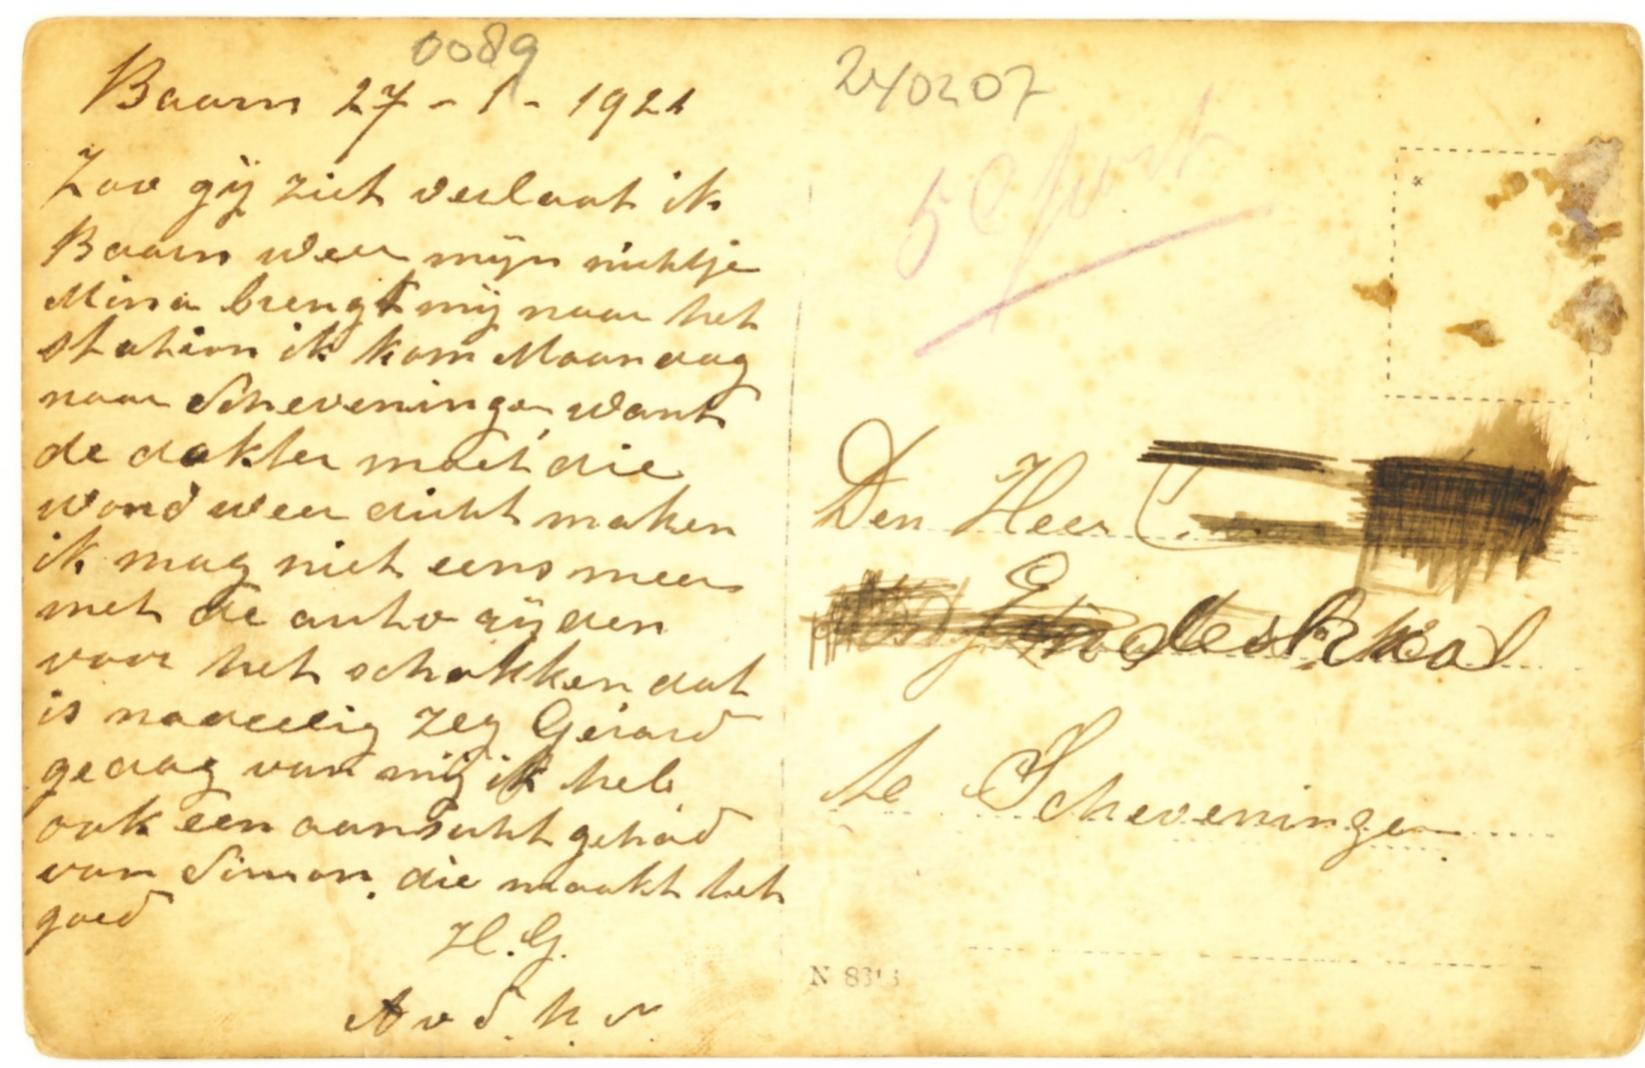 0089
Baarn 27 - 1 - 1921
Zoo gij ziet verlaat ik
Baarn weer mijn nichtje
Mina brengt mij naar het
station ik kom Maandag
naar Scheveninge want
de dokter moet die
wond weer dicht maken
ik mag niet eens meer
met de auto rijden
voor het schokken dat
is nadeelig zeg Gérard
gedag van mij ik heb
ook een aansicht gehad
van Simon. die maakt het
goed
H.G.
A v d. h
240207
5 C port
Den Heer C.
te Scheveningen
N 83